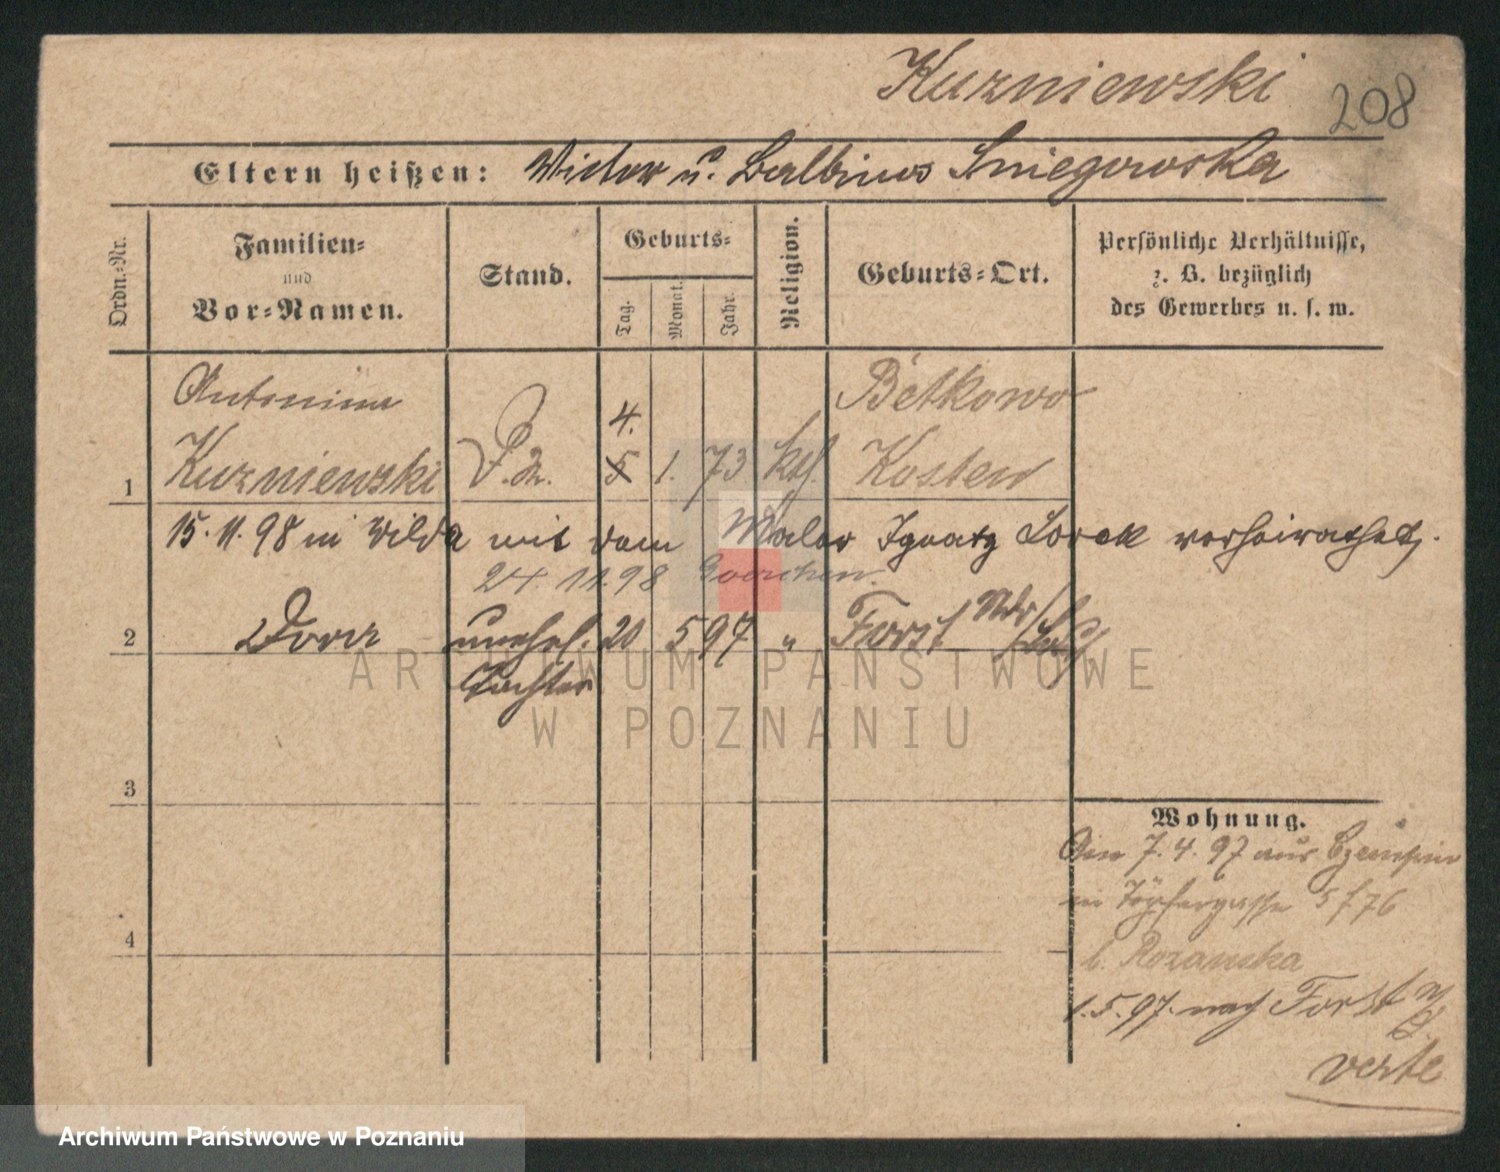 Kuzniewski 208
Eltern heißen: Victor u. Balbina Sniegowska
Ordn.=Nr.
Familien=
und
Vor=Namen.
Stand.
Geburts=
Tag.
Monat.
Jahr.
Religion.
Geburts=Ort.
Persönliche Verhältnisse,
z. B. bezüglich
des Gewerbes u. s. w.
Antonina 4. Betkowo
1 Kuzniewski 5 1. 73 kth. Kosten
15. 11. 98 in Wilda mit dem Maler Ignatz verheirathet.
24. 11. 98
2 Dora unehel. 20 5 97 " Forst
Tochter
3
4
Wohnung.
Am 7. 4. 97 aus Czempin
in Töpfergasse 5
b. Rozanska
1. 5. 97. nach Forst
verte
ARCHIWUM PAŃSTWOWE
W POZNANIU
Archiwum Państwowe w Poznaniu